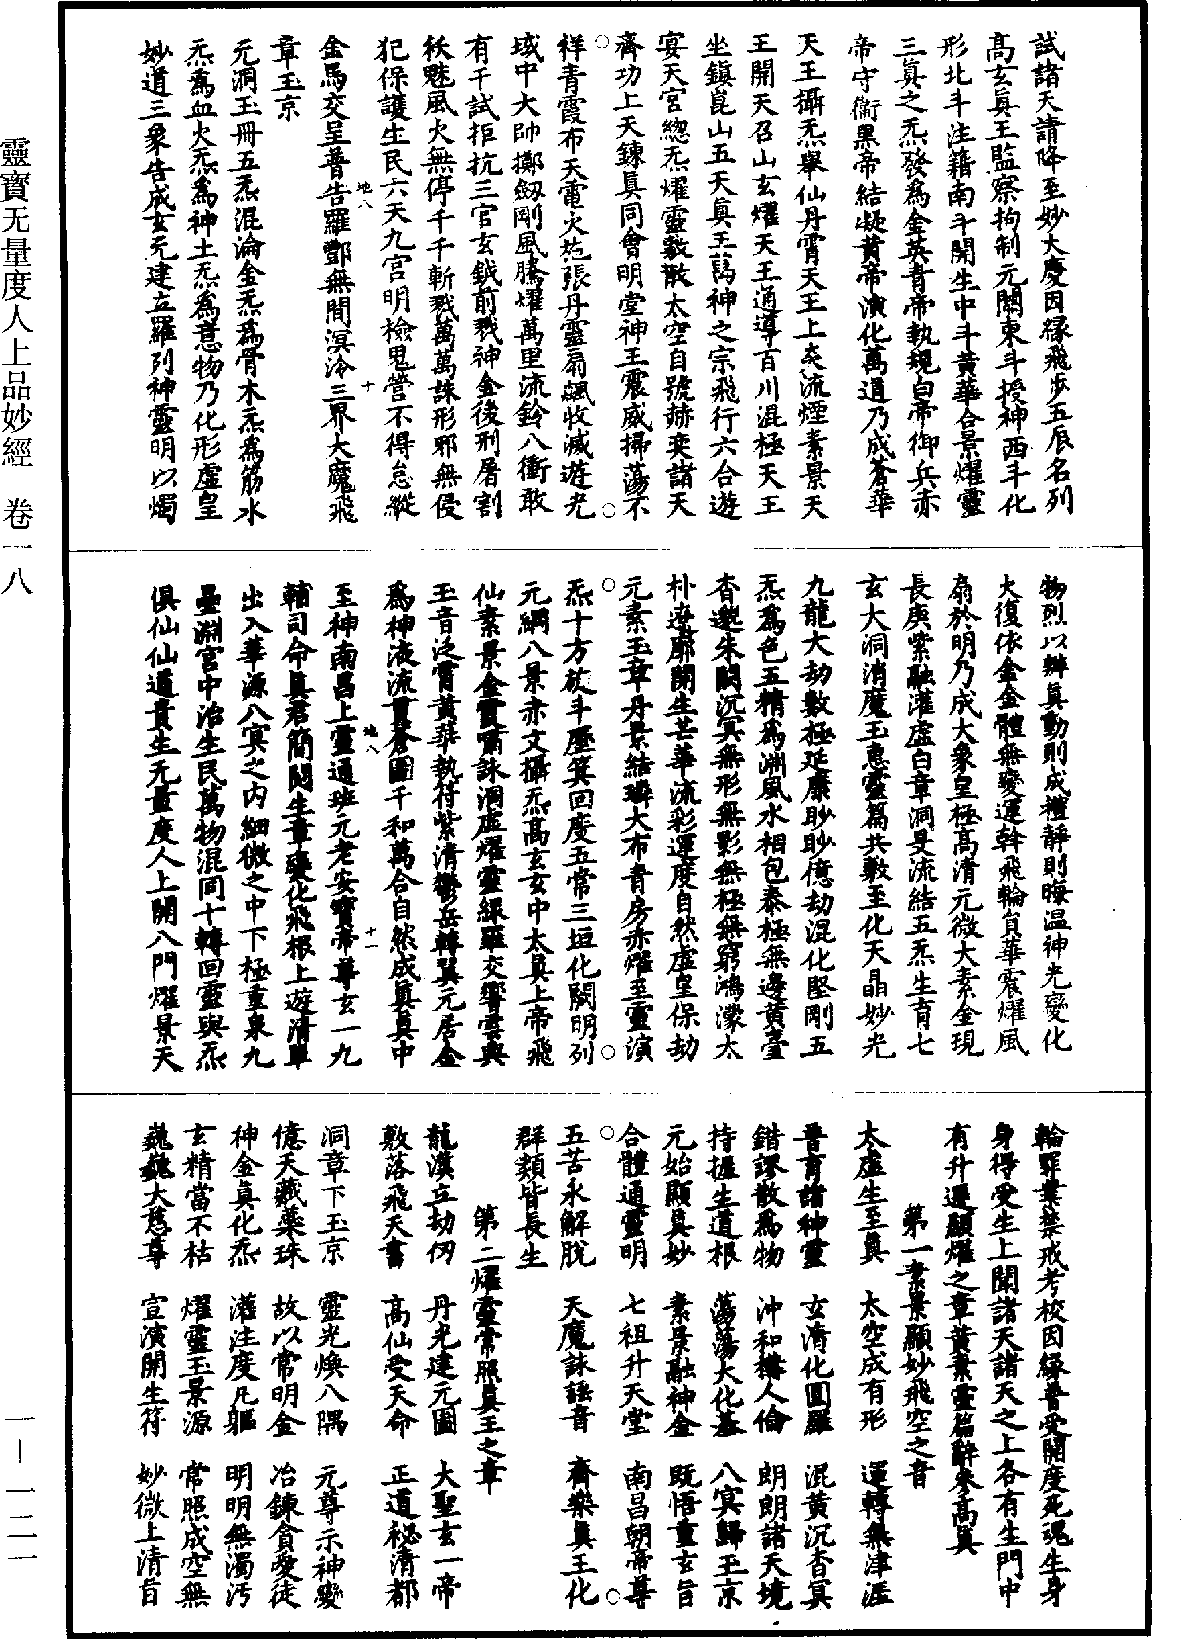 靈寶无量度人上品妙經　卷一八
一—一二一
試諸天請降至妙大慶因緣飛步五辰名列
高玄真王監察拘制元關東斗授神西斗化
形北斗注籍南斗開生中斗黃華合景燿靈
三真之炁發為金英青帝執規白帝御兵赤
帝守衞黑帝結凝黃帝演化萬道乃成蒼華
天王攝炁舉仙丹霄天王上炎流煙素景天
王開天召山玄燿天王通導百川混極天王
坐鎮崑山五天真王萬神之宗飛行六合遊
宴天宮總炁燿靈數散太空自號赫奕諸天
齊功上天鍊真同會明堂神王震威掃蕩不
祥青霞布天電火炮張丹靈扇飆收滅遊光
域中大帥擲劔剛風騰燿萬里流鈴八衝敢
有干試拒抗三官玄鉞前戮神金後刑屠割
秡魅風火無停千千斬戮萬萬誅形邪無侵
犯保護生民六天九宮明檢鬼營不得怠縱
地八　十
金馬交呈普告羅酆無間溟泠三界大魔飛
章玉京
元洞玉冊五炁混淪金炁為骨木炁為筋水
炁為血火炁為神土炁為意物乃化形虛皇
妙道三衆告成玄元建立羅列神靈明以燭
物烈以辨真動則成禮靜則晦温神光變化
大復依金金體無變運斡飛輪負華震燿風
扇於明乃成大衆皇極高清元微大素金現
長庚紫融灌虛白章洞旻流結五炁生育七
玄大洞消魔玉惠靈篇共數至化天晶妙光
九龍大劫數極延康眇眇億劫混化堅剛五
炁為色五精為淵風水相包泰極無邊黃臺
杳邈朱闕沉冥無形無影無極無窮鴻濛太
朴遼廓開生芒華流彩運度自然虛皇保劫
元素玉章丹景結璘大布青房赤燿至靈演
炁十方放斗歷箕回度五常三垣化闕明列
元綱八景赤文攝炁高玄玄中太真上帝飛
仙素景金寶嘯詠洞虛燿靈綠羅交響雲輿
玉音泛霄黃華執符紫清鬱岳轉翼元居金
為神液流貫蒼圖千和萬合自然成真真中
地八　十一
至神南昌上靈通班元老安寶帝尊玄一九
輔司命真君簡閱生章變化飛根上遊清單
出入華源八冥之內細微之中下極重泉九
壘淵宮中治生民萬物混同十轉回靈與炁
俱仙仙道貴生无量度人上開八門燿景天
輪罪業禁戒考校因緣普受開度死魂生身
身得受生上聞諸天諸天之上各有生門中
有升遷顯燿之章黃素靈篇辭參高真
第一素景顯妙飛空之音
太虛生至真　太空成有形　運轉無津涯
普育諸神靈　玄濟化圓羅　混黃沉杳冥
錯謬散為物　沖和構人倫　朗朗諸天境
持握生道根　蕩蕩大化基　八冥歸玉京
元始顯真妙　素景融神金　既悟重玄旨
合體通靈明　七祖升天堂　南昌朝帝尊
五苦永解脫　天魔詠謠音　齊樂真王化
群類皆長生
第二燿靈常照真王之章
龍漢立劫仞　丹光建元圖　大聖玄一帝
敷落飛天書　高仙受天命　正道祕清都
洞章下玉京　靈光煥八隅　元尊示神變
億天藏藥珠　故以常明金　冶鍊貪愛徒
神金真化炁　灌注度凡軀　明明無濁汚
玄精當不枯　燿靈玉景源　常照成空無
巍巍大慈尊　宣演開生符　妙微上清旨